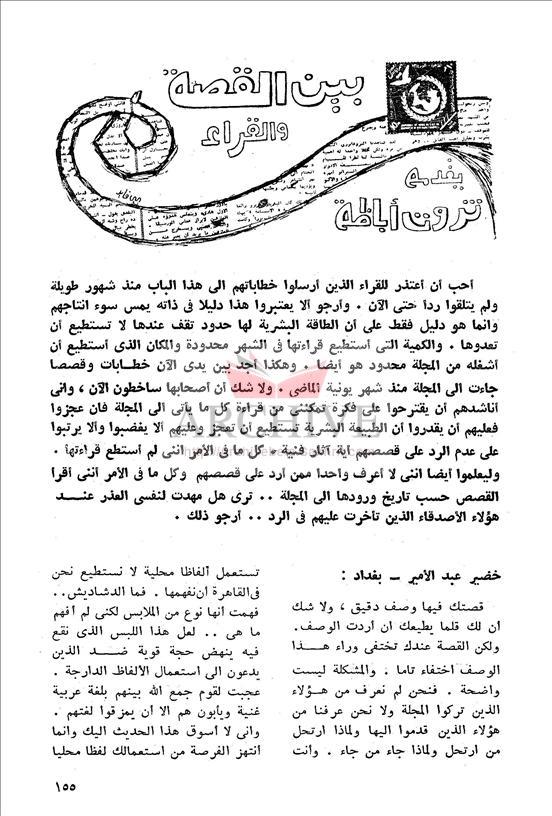 بين القصة
والقراء
يقدمه
ثروت أباظة
أحب أن أعتذر للقراء الذين أرسلوا خطاباتهم الى هذا الباب منذ شهور طويلة
ولم يتلقوا ردا حتى الآن . وأرجو ألا يعتبروا هذا دليلا فى ذاته يمس سوء انتاجهم
وانما هو دليل فقط على أن الطاقة البشرية لها حدود تقف عندها لا تستطيع أن
تعدوها . والكمية التى أستطيع قراءتها فى الشهر محدودة والمكان الذى أستطيع أن
أشغله من المجلة محدود هو أيضا . وهكذا أجد بين يدى الآن خطابات وقصصا
جاءت الى المجلة منذ شهر يونية الماضى . ولا شك أن أصحابها ساخطون الآن ، وانى
أناشدهم أن يقترحوا على فكرة تمكننى من قراءة كل ما يأتى الى المجلة فان عجزوا
فعليهم أن يقدروا أن الطبيعة البشرية تستطيع أن تعجز وعليهم ألا يغضبوا وألا يرتبوا
على عدم الرد على قصصهم أية آثار فنية . كل ما فى الأمر اننى لم أستطع قراءتها .
وليعلموا أيضا اننى لا أعرف واحدا ممن أرد على قصصهم وكل ما فى الأمر أننى أقرأ
القصص حسب تاريخ ورودها الى المجلة .. ترى هل مهدت لنفسى العذر عند
هؤلاء الأصدقاء الذين تأخرت عليهم فى الرد .. أرجو ذلك .
خضير عبد الأمير – بغداد :
قصتك فيها وصف دقيق ، ولا شك
ان لك قلما يطيعك ان أردت الوصف.
ولكن القصة عندك تختفى وراء هذا
الوصف اختفاء تاما . والمشكلة ليست
واضحة . فنحن لم نعرف من هؤلاء
الذين تركوا المجلة ولا نحن عرفنا من
هؤلاء الذين قدموا اليها ولماذا ارتحل
من ارتحل ولماذا جاء من جاء . وانت
تستعمل ألفاظا محلية لا نستطيع نحن
فى القاهرة أن نفهمها . فما الدشاديش..
فهمت أنها نوع من الملابس لكنى لم أفهم
ما هى .. لعل هذا اللبس الذى نقع
فيه ينهض حجة قوية ضد الذين
يدعون الى استعمال الألفاظ الدارجة .
عجبت لقوم جمع الله بينهم بلغة عربية
غنية ويأبون هم الا أن يمزقوا لغتهم .
وانى لا أسوق هذا الحديث اليك وانما
أنتهز الفرصة من استعمالك لفظا محليا
١٥٥
ARCHIVE